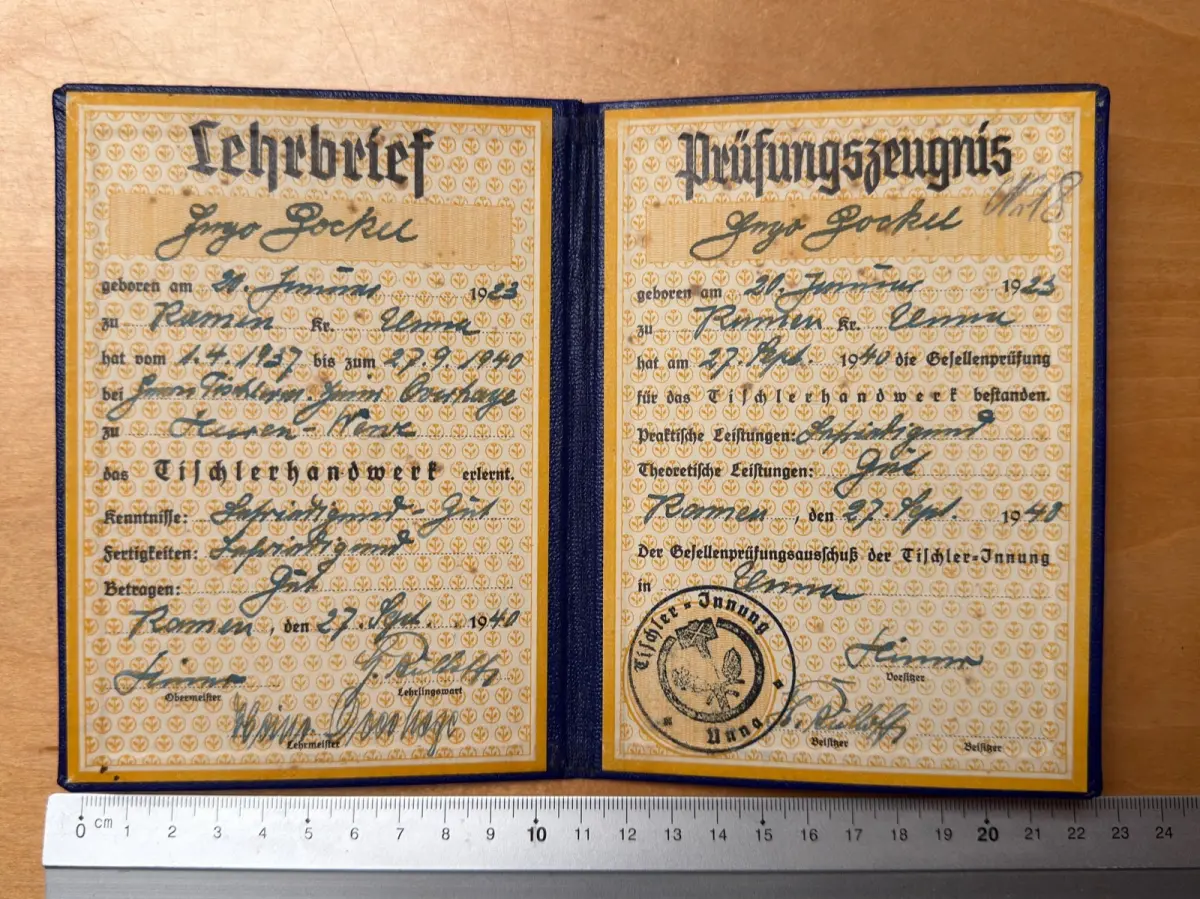 Lehrbrief
Ingo Pockel
geboren am 20. Januar 1923
zu Kamen Kr. Unna
hat vom 1.4.1937 bis zum 27.9.1940
bei Herrn Overhage
zu Heeren-Werve
das Tischlerhandwerk erlernt.
Kenntnisse: Befriedigend - Gut
Fertigkeiten: Befriedigend
Betragen: Gut
Kamen, den 27. Sept. 1940
Obermeister
Lehrlingswart
Heinr. Overhage
Lehrmeister
Prüfungszeugnis
Nr. 18
Ingo Pockel
geboren am 20. Januar 1923
zu Kamen Kr. Unna
hat am 27. Sept. 1940 die Gesellenprüfung
für das Tischlerhandwerk bestanden.
Praktische Leistungen: Befriedigend
Theoretische Leistungen: Gut
Kamen, den 27. Sept. 1940
Der Gesellenprüfungsausschuß der Tischler-Innung
in Unna
Tischler-Innung
Unna
Vorsitzer
Beisitzer
Beisitzer
0 cm 1 2 3 4 5 6 7 8 9 10 11 12 13 14 15 16 17 18 19 20 21 22 23 24